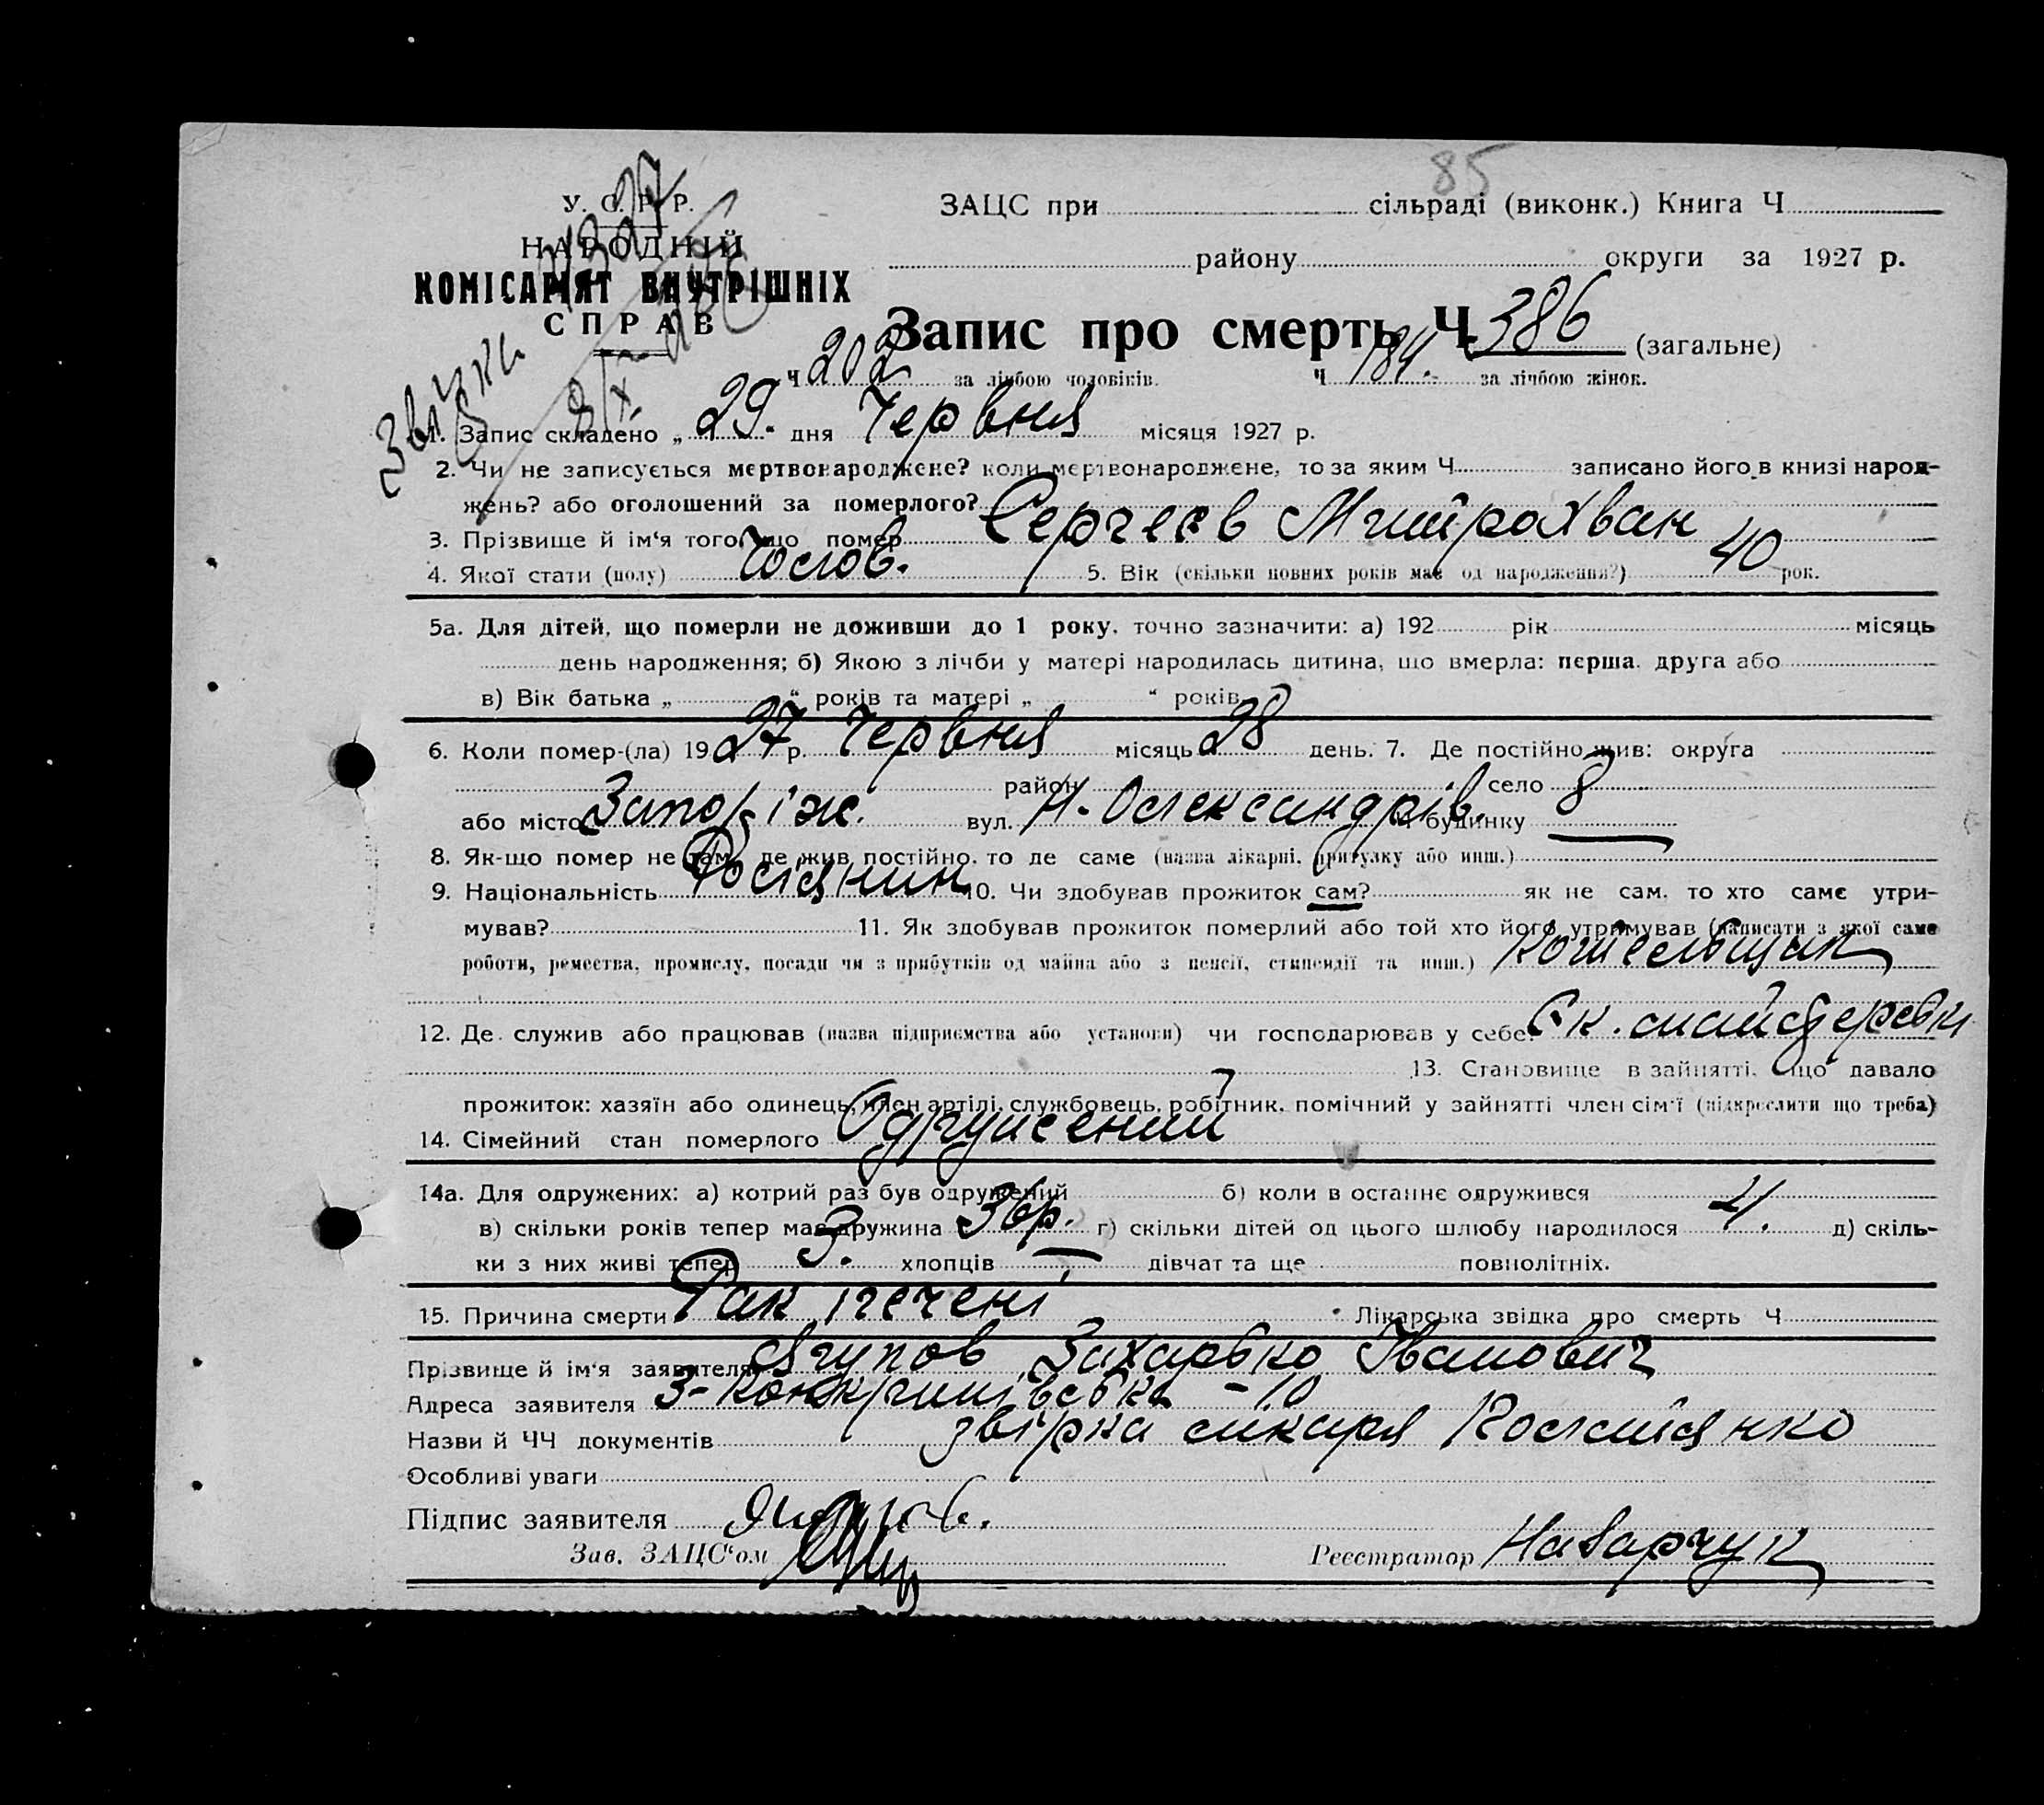 85
У. С. Р. Р.
НАРОДНІЙ
КОМІСАРІЯТ ВНУТРІШНІХ
СПРАВ
ЗАЦС при сільраді (виконк.) Книга Ч
району округи за 1927 р.
Запис про смерть Ч. 386 (загальне)
ч 202 за лічбою чоловіків. ч 184. за лічбою жінок.
1. Запис складено „ 29. " дня Червня місяця 1927 р.
2. Чи не записується мертвонароджене? коли мертвонароджене, то за яким Ч. записано його в книзі народ-
жень? або оголошений за померлого?
3. Прізвище й ім'я того, що помер Сергеєв Митрохван
4. Якої стати (полу) Чолов. 5. Вік (скільки повних років має од народження?) 40 рок.
5а. Для дітей, що померли не доживши до 1 року, точно зазначити: а) 192 рік місяць
день народження; б) Якою з лічби у матері народилась дитина, що вмерла: перша, друга або
в) Вік батька „ " років та матері „ " років
6. Коли помер-(ла) 1927 р. Червня місяць 28 день. 7. Де постійно жив: округа
район село
або місто Запоріж. вул. Н-Олександрів. Ч будинку 8
8. Як-що помер не там, де жив постійно, то де саме (назва лікарні, притулку або инш.)
9. Національність Росіянин 10. Чи здобував прожиток сам? як не сам, то хто саме утри-
мував? 11. Як здобував прожиток померлий або той хто його утримував (написати з якої саме
роботи, ремества, промислу, посади чи з прибутків од майна або з пенсії, стипендії та инш.) Котельщик
12. Де служив або працював (назва підприємства або установи) чи господарював у себе?
13. Становище в зайнятті, що давало
прожиток: хазяїн або одинець, член артілі, службовець, робітник, помічний у зайнятті член сім'ї (підкреслити що треба)
14. Сімейний стан померлого Одружений
14а. Для одружених: а) котрий раз був одружений б) коли в останнє одружився
в) скільки років тепер має дружина 36р. г) скільки дітей од цього шлюбу народилося 4. д) скіль-
ки з них живі тепер 3. хлопців дівчат та ще повнолітніх.
15. Причина смерти Рак печені Лікарська звідка про смерть Ч
Прізвище й ім'я заявителя Ягупов Захарько Іванович
Адреса заявителя 3- - 10
Назви й ЧЧ документів звірка лікаря
Особливі уваги
Підпис заявителя
Зав. ЗАЦС'ом Реєстратор Назарчук